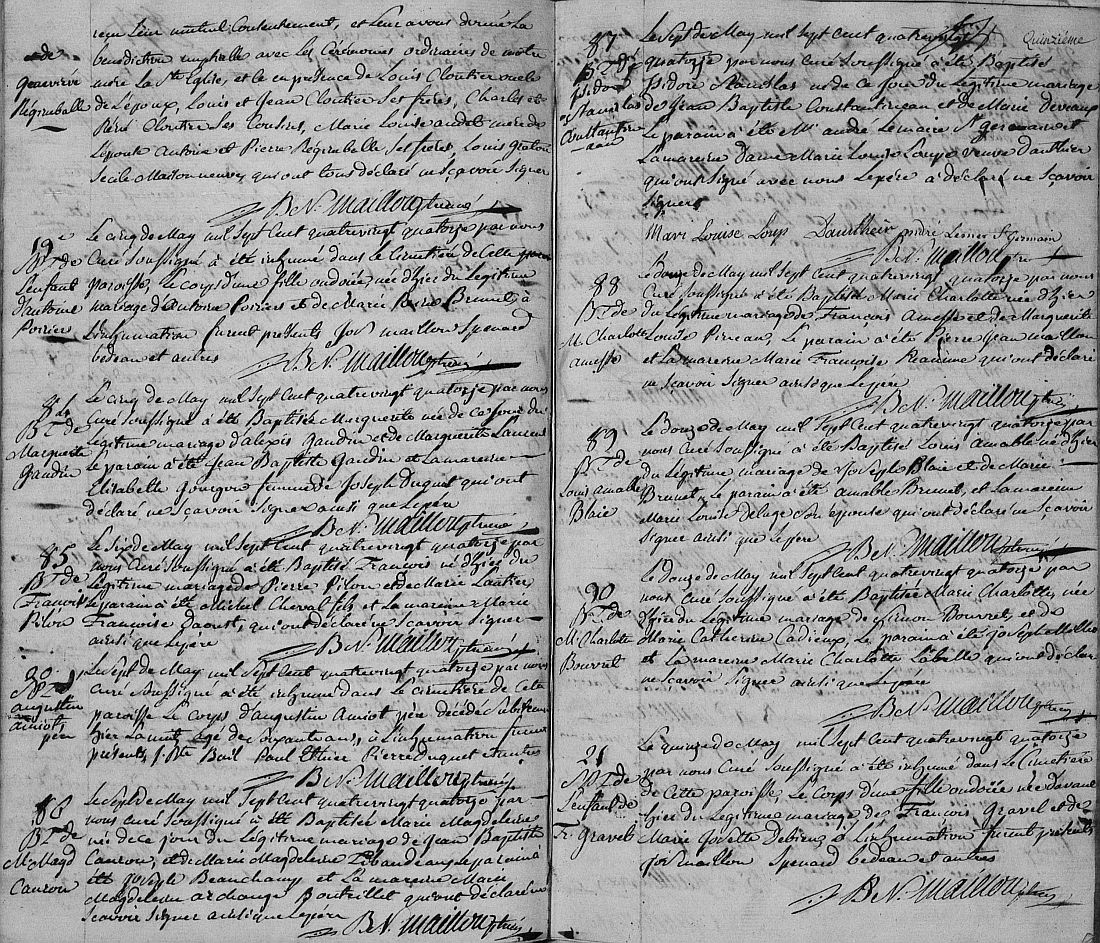 reçu Leur mutuel Consentement, et Leur avons donné La
benediction nuptialle avec Les Cérémonies ordinaires de notre
mere La Ste Eglise, et le en presence de Louis Cloutier oncle
de Lépoux, Louis et Jean Cloutier Ses frères, Charles et
Réné Cloutier Ses Cousins, Marie Louise mere de
Lépouse Antoine et Pierre Regimballe Ses frères, Louis
qui ont tous déclaré ne Sçavoir Signer
de
Geneviève
Régimballe
B. N. Maillou ptre
19e
Spt de
Lenfant
d'antoine
Poirier
Le cinq de May mil Sept Cent quatrevingt quatorze par nous
Curé Soussigné a été inhumé dans Le Cimetière de Cette
paroisse, Le Corps d'une fille ondoiée, née d'hier du Legitime
mariage d'Antoine Poirier et de Marie Brunet, à
Linhumation furent présents Jos maillou Spenard
bedeau et autres
B. N. Maillou ptre
84
Bt de
Marguerite
Gaudin
Le cinq de May mil Sept Cent quatrevingt quatorze par nous
Curé Soussigné a été Baptisée Marguerite née de ce jour du
Legitime mariage d'alexis Gaudin et de Marguerite Laurens
Le parain a été Jean Baptiste Gaudin et La mareine
Elisabette Gourgon femme de Joseph Duquet qui ont
déclaré ne Sçavoir Signer ainsi que Lepère
B. N. Maillou ptre
85
Bt de
François
Pilon
Le Six de May mil Sept Cent quatrevingt quatorze par
nous Curé Soussigné a été Baptisé François né d'hier du
Legitime mariage de Pierre Pilon et de Marie Lautier
Le parain a été Michel Cheval fils et La mareine Marie
Françoise Daoust, qui ont déclaré ne Sçavoir Signer
ainsi que Lepère
B. N. Maillou ptre
20
Spt d
augustin
amiot
père
Le Sept de May mil Sept Cent quatrevingt quatorze par nous
Curé Soussigné a été inhumé dans Le Cimetière de Cette
paroisse Le Corps d'augustin Amiot père décédé Subitement
hier La nuit agé de Soixante ans, à Linhumation furent
présents J. Bte Bail Paul Ethier Pierre Duquet et autres
B. N. Maillou ptre
86
Bt de
M. Magd
Cauron
Le Sept de May mil Sept Cent quatrevingt quatorze par
nous curé Soussigné a été Baptisée Marie Magdeleine
née de ce jour du Légitime mariage de Jean Baptiste
Cauron, et de Marie Magdeleine Le parain a
été Joseph Beauchamp et La mareine Marie
Magdeleine archange qui ont déclaré ne
Scavoir Signer ainsi que Lepère
B. N. Maillou ptre
Quinzième
87
Bt de
Isidore
Stanislas
Constantineau
Le Sept de May mil Sept Cent quatrevingt
quatorze par nous Curé Soussigné a été Baptisé
Isidore Stanislas né de ce jour du Légitime mariage
de Jean Baptiste Constantineau et de Marie
Le parain a été Mr andré Lemaire St germain et
La mareine Dame Marie Louise Loupe veuve Dauthier
qui ont Signé avec nous Lepère a déclaré ne Sçavoir
Signer
Mari Louise Loup Dautheir andré Lemer St Germain
B. N. Maillou ptre
88
Bt de
M. Charlotte
amesse
Le douze de May mil Sept Cent quatrevingt quatorze par nous
Curé Soussigné a été Baptisée Marie Charlotte née d'hier
du Legitime mariage de François Amesse et de Marguerite
Louise Pineau, Le parain a été Pierre Jean maillou
et La mareine Marie Françoise qui ont déclaré
ne Scavoir Signer ainsi que Lepère
B. N. Maillou ptre
89
Bt de
Louis Amable
Blaie
Le douze de May mil Sept Cent quatrevingt quatorze par
nous Curé Soussigné a été Baptisé Louis Amable né d'hier
du Legitime mariage de Joseph Blaie et de Marie
Brunet, Le parain a été amable Brunet, et La mareine
Marie Louise Deloge Son epouse qui ont déclaré ne Scavoir
Signer ainsi que Lepère
B. N. Maillou ptre
90
Bt de
M. Charlotte
Bouvret
Le douze de May mil Sept Cent quatrevingt quatorze par
nous Curé Soussigné a été Baptisée Marie Charlotte, née
d'hier du Legitime mariage de Simon Bouvret, et de
Marie Catherine Cadieux, Le parain a été joseph
et La mareine Marie Charlotte Labelle qui ont déclaré
ne Scavoir Signer ainsi que Lepère
B. N. Maillou ptre
21
Spt de
Lenfant de
Fr. Gravel
Le quinze de May mil Sept Cent quatrevingt quatorze
par nous Curé Soussigné a été inhumé dans Le Cimetière
de Cette paroisse, Le Corps d'une fille ondoiée née davant
hier du Legitime mariage de François Gravel et de
Marie Josette à Linhumation furent présents
Jos maillou Spenard bedeau et autres
B. N. Maillou ptre